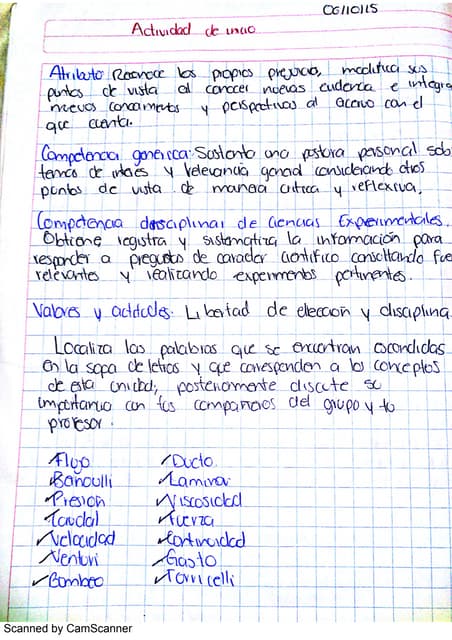 06/10/15
Actividad de inicio
Atributo Reconoce los propios prejuicio, modifica sus
puntos de vista al conocer nuevas evidencia e integra
nuevos conocimientos y perspectivas al acervo con el
que cuenta.
Competencia generica: Sustenta una postura personal sob
temas de interes y relevancia general considerando otros
puntos de vista de manera critica y reflexiva,
Competencia disciplinar de ciencias Experimentales.
Obtiene registra y sistematiza la información para
responder a pregunta de caracter cientifico consultando fue
relevantes y realizando experimentos pertinentes.
Valores y actitudes. Libertad de eleccion y disciplina
Localiza las palabras que se encuentran escondidas
en la sopa de letras y que corresponden a los conceptos
de esta unidad, posteriormente discute su
importancia con tus compañeros del grupo y tu
profesor.
Flujo
Banoulli
Presion
Caudal
Velocidad
Venturi
Bombeo
Ducto
Laminar
Viscosidad
Fuerza
Continuidad
Gasto
Torricelli
Scanned by CamScanner